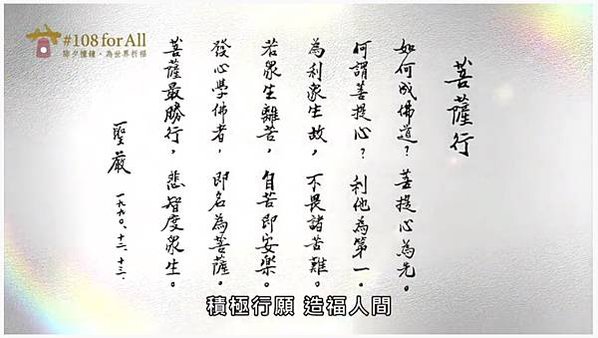 #108forAll
除夕撞鐘，為世界祈福
菩薩行
如何成佛道？菩提心為先。
何謂菩提心？利他為第一。
為利眾生故，不畏諸苦難。
若眾生離苦，自苦即安樂。
發心學佛者，即名為菩薩。
菩薩最勝行，悲智度眾生。
聖嚴
一九九〇、十二、十三、
積極行願 造福人間